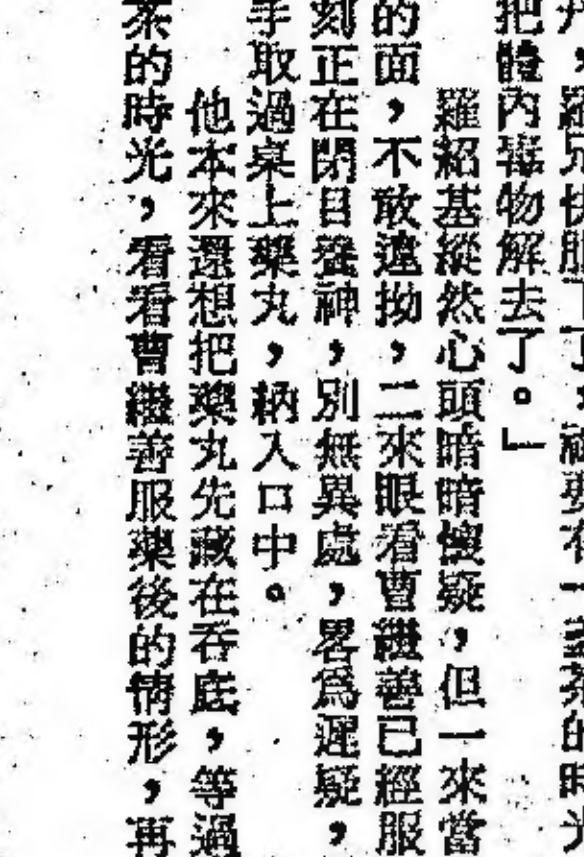 丹，羅兄快服下了，祗要有一盞茶的時光
把體內毒物解去了。」
羅紹基縱然心頭暗暗懷疑，但一來當
的面，不敢違拗，二來眼看曹繼善已經服
刻正在閉目養神，別無異處，畧爲遲疑，
手取過桌上藥丸，納入口中。
他本來還想把藥丸先藏在吞底，等過
茶的時光，看看曹繼善服藥後的情形，再